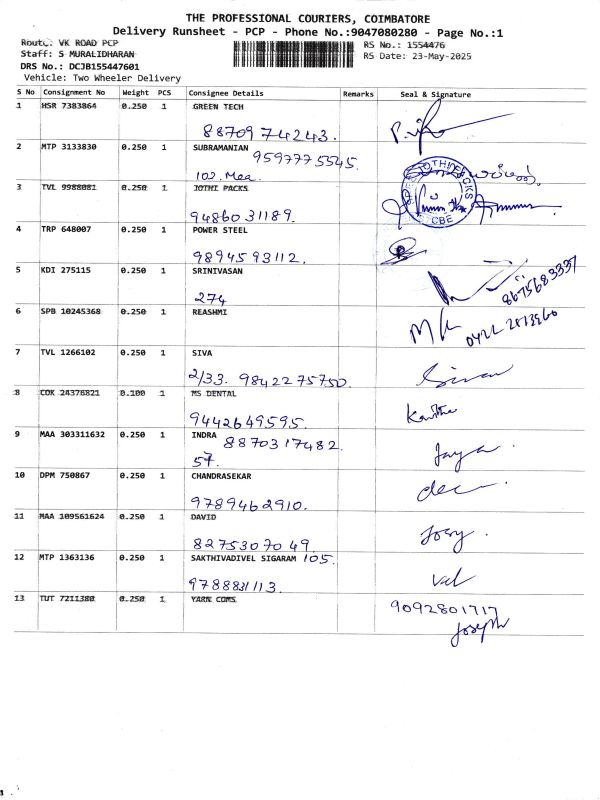 THE PROFESSIONAL COURIERS, COIMBATORE
Delivery Runsheet - PCP - Phone No.:9047080280 - Page No.:1
Route: VK ROAD PCP
RS No.: 1554476
Staff: S MURALIDHARAN
RS Date: 23-May-2025
DRS No.: DCJB155447601
Vehicle: Two Wheeler Delivery
S No Consignment No Weight PCS Consignee Details Remarks Seal & Signature
1 HSR 7383864 0.250 1 GREEN TECH
8870974243.
2 MTP 3133830 0.250 1 SUBRAMANIAN
9597775545.
102. Mea.
3 TVL 9988081 0.250 1 JOTHI PACKS
9486031189.
CBE
4 TRP 648007 0.250 1 POWER STEEL
9894593112.
5 KDI 275115 0.250 1 SRINIVASAN
274
8675683337
6 SPB 10245368 0.250 1 REASHMI
7 TVL 1266102 0.250 1 SIVA
2/33. 9842275750.
Sivan
8 COK 24376821 0.100 1 MS DENTAL
9442649595.
Kavitha
9 MAA 303311632 0.250 1 INDRA
8870317482.
57.
Jaya.
10 DPM 750867 0.250 1 CHANDRASEKAR
9789462910.
11 MAA 109561624 0.250 1 DAVID
8275307049.
12 MTP 1363136 0.250 1 SAKTHIVADIVEL SIGARAM 105.
9788831113.
Val
13 TUT 7211380 0.250 1 YARN COMS.
9092801717
Joseph